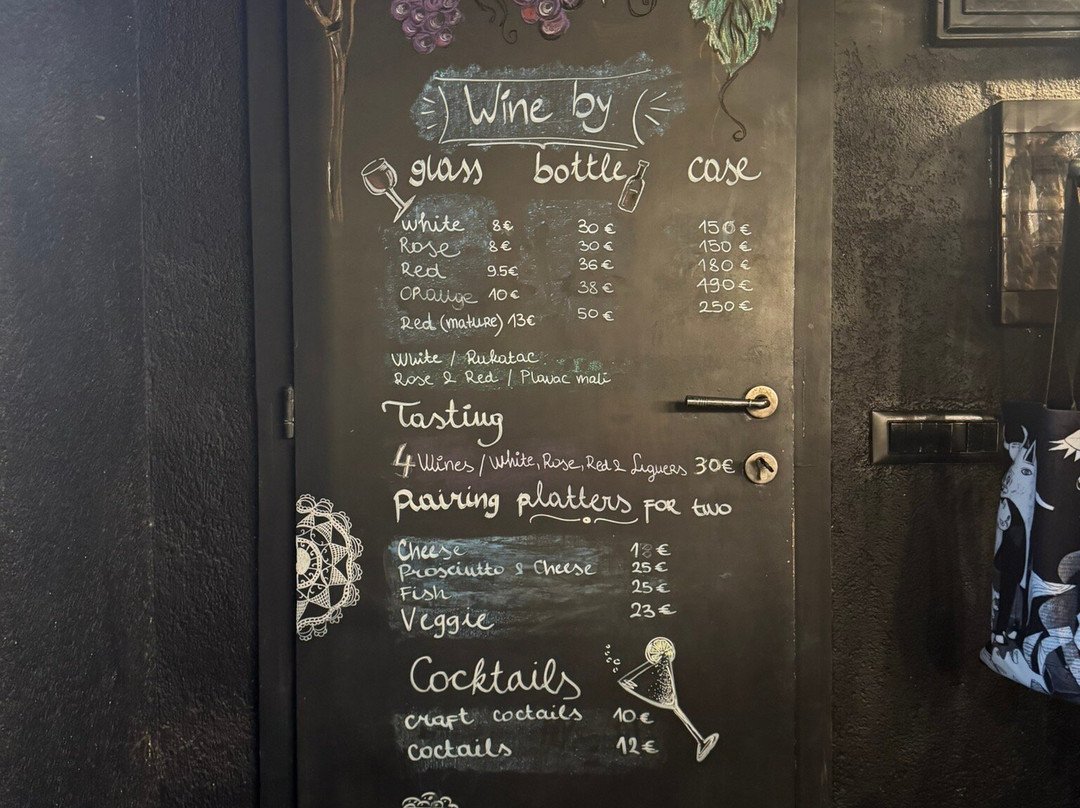 Wine by
glass bottle case
White 8€ 30€ 150€
Rose 8€ 30€ 150€
Red 9.5€ 36€ 180€
Orange 10€ 38€ 190€
Red (mature) 13€ 50€ 250€
White / Rukatac
Rose & Red / Plavac mali
Tasting
4 Wines / White, Rose, Red & Liquers 30€
pairing platters for two
Cheese 18€
Prosciutto & Cheese 25€
Fish 25€
Veggie 23€
Cocktails
craft coctails 10€
coctails 12€